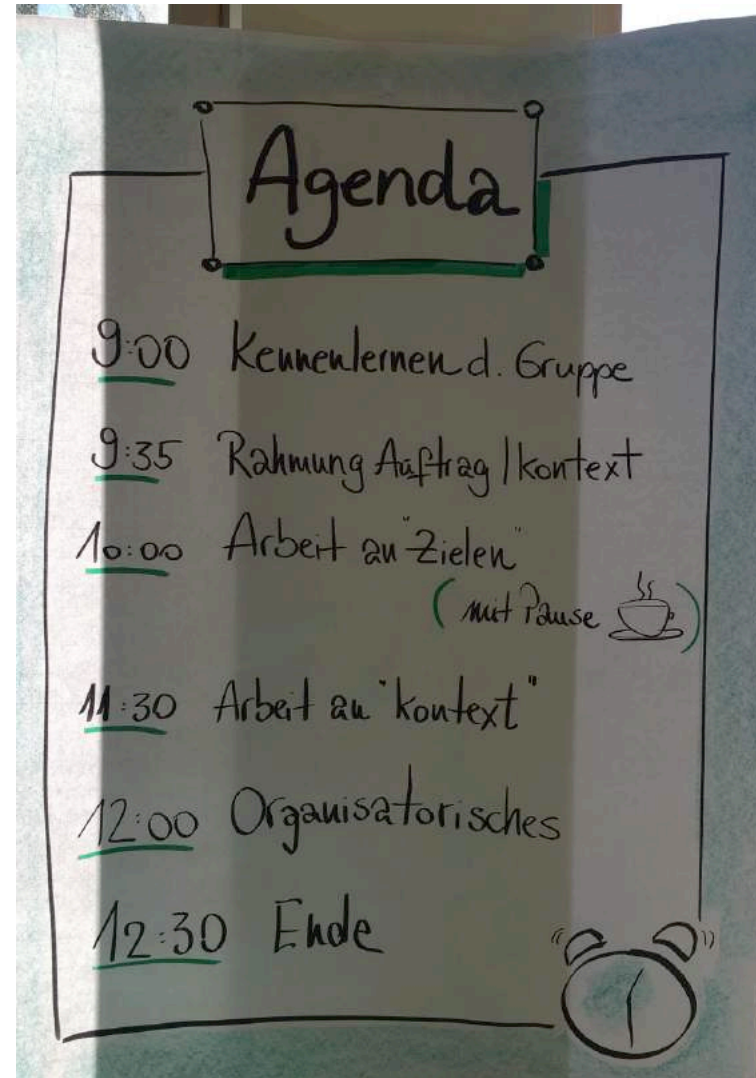 Agenda
9:00 Kennenlernen d. Gruppe
9:35 Rahmung Auftrag / Kontext
10:00 Arbeit an "Zielen"
(mit Pause )
11:30 Arbeit an "Kontext"
12:00 Organisatorisches
12:30 Ende